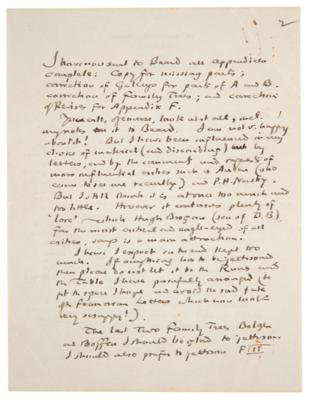 2
I have now sent to Beard all appendices
complete: Copy for missing parts;
correction of Galleys for parts of A and B.
correction of Family Trees; and correction
of Revises for Appendix F.
You can, of course, look at it all,
my notes on it to Beard. I am not v. happy
about it! But I have been influenced in my
choice of material (and discarding) not by
letters, and by the comments and requests of
more influential critics such as Auden (who
came to see me recently) and P.H. Newby.
But I still think it is at once too much and
too little. However it contains plenty of
'lore' which Hugh Brogan (son of D.B.)
far the most critical and eagle-eyed of all
critics, says is a main attraction.
I have I expect in the end kept too
much. If anything has to be jettisoned
then please do not let it be the Runes and
the Table I have painfully arranged (to
fit the space I hope and avoid the sad fate
of the Feanorian Letters which now look
very scrappy!).
The last Two Family Trees Bolger
and Boffin I should be glad to jettison.
I should also prefer to jettison F II